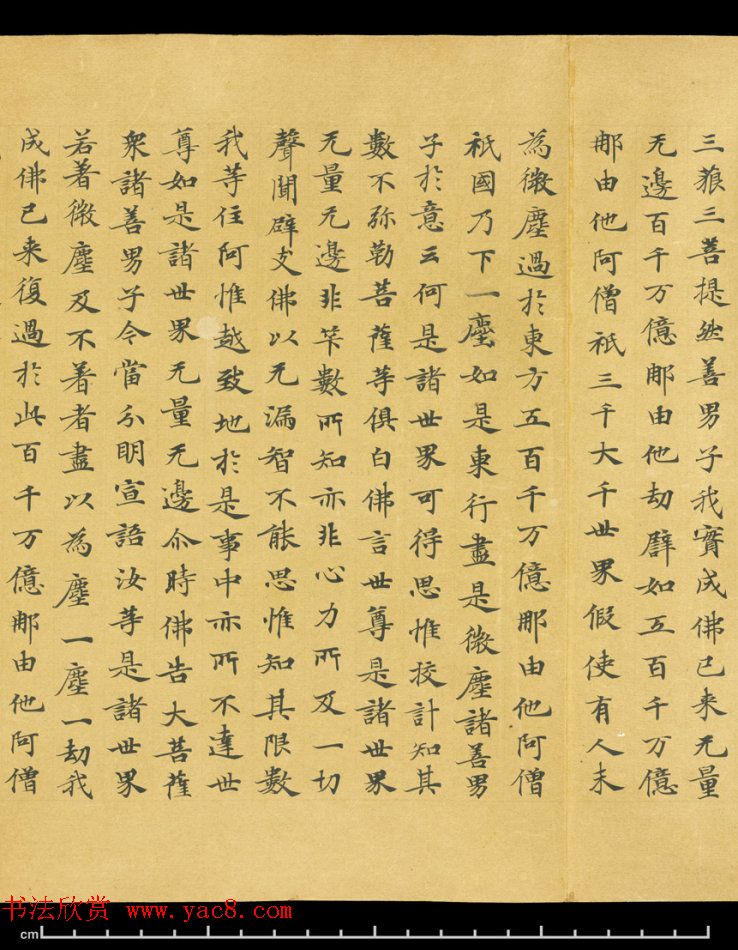 三藐三菩提然善男子我實成佛已来无量
无邊百千万億那由他劫譬如五百千万億
那由他阿僧祇三千大千世界假使有人末
為微塵過於東方五百千万億那由他阿僧
祇國乃下一塵如是東行盡是微塵諸善男
子於意云何是諸世界可得思惟挍計知其
數不弥勒菩薩等俱白佛言世尊是諸世界
无量无邊非筭數所知亦非心力所及一切
聲聞辟支佛以无漏智不能思惟知其限數
我等住阿惟越致地於是事中亦所不達世
尊如是諸世界无量无邊尒時佛告大菩薩
衆諸善男子今當分明宣語汝等是諸世界
若著微塵及不著者盡以為塵一塵一劫我
成佛已来復過於此百千万億那由他阿僧
书法欣赏 www.yac8.com
cm